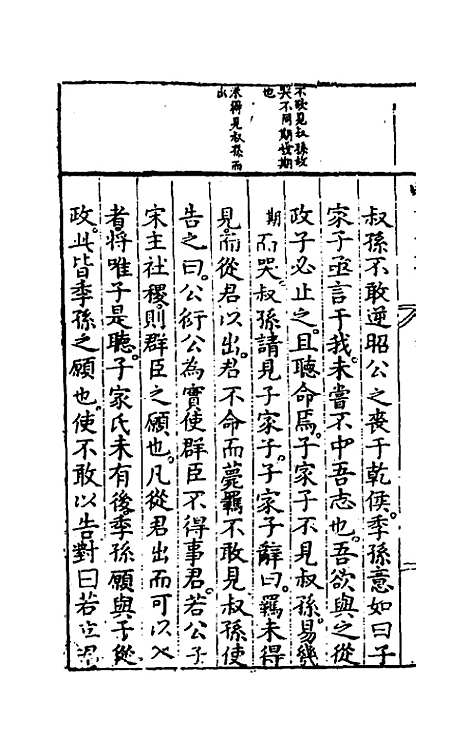 不欲見叔孫故
哭不同期故期
也
未得見叔孫而
出
叔孫不敢逆昭公之喪于乾侯。季孫意如曰子
家子亟言于我。未嘗不中吾志也。吾欲與之從
政子必止之。且聽命焉。子家子不見叔孫。易幾
期而哭。叔孫請見子家子。子家子辭曰。羈未得
見。而從君以出。君不命而薨。羈不敢見叔孫使
告之曰。公衍公為實使群臣不得事君。若公子
宋主社稷。則群臣之願也。凡從君出而可以入
者。將唯子是聽。子家氏未有後。季孫願與子從
政。此皆季孫之願也。使不敢以告對曰若立君